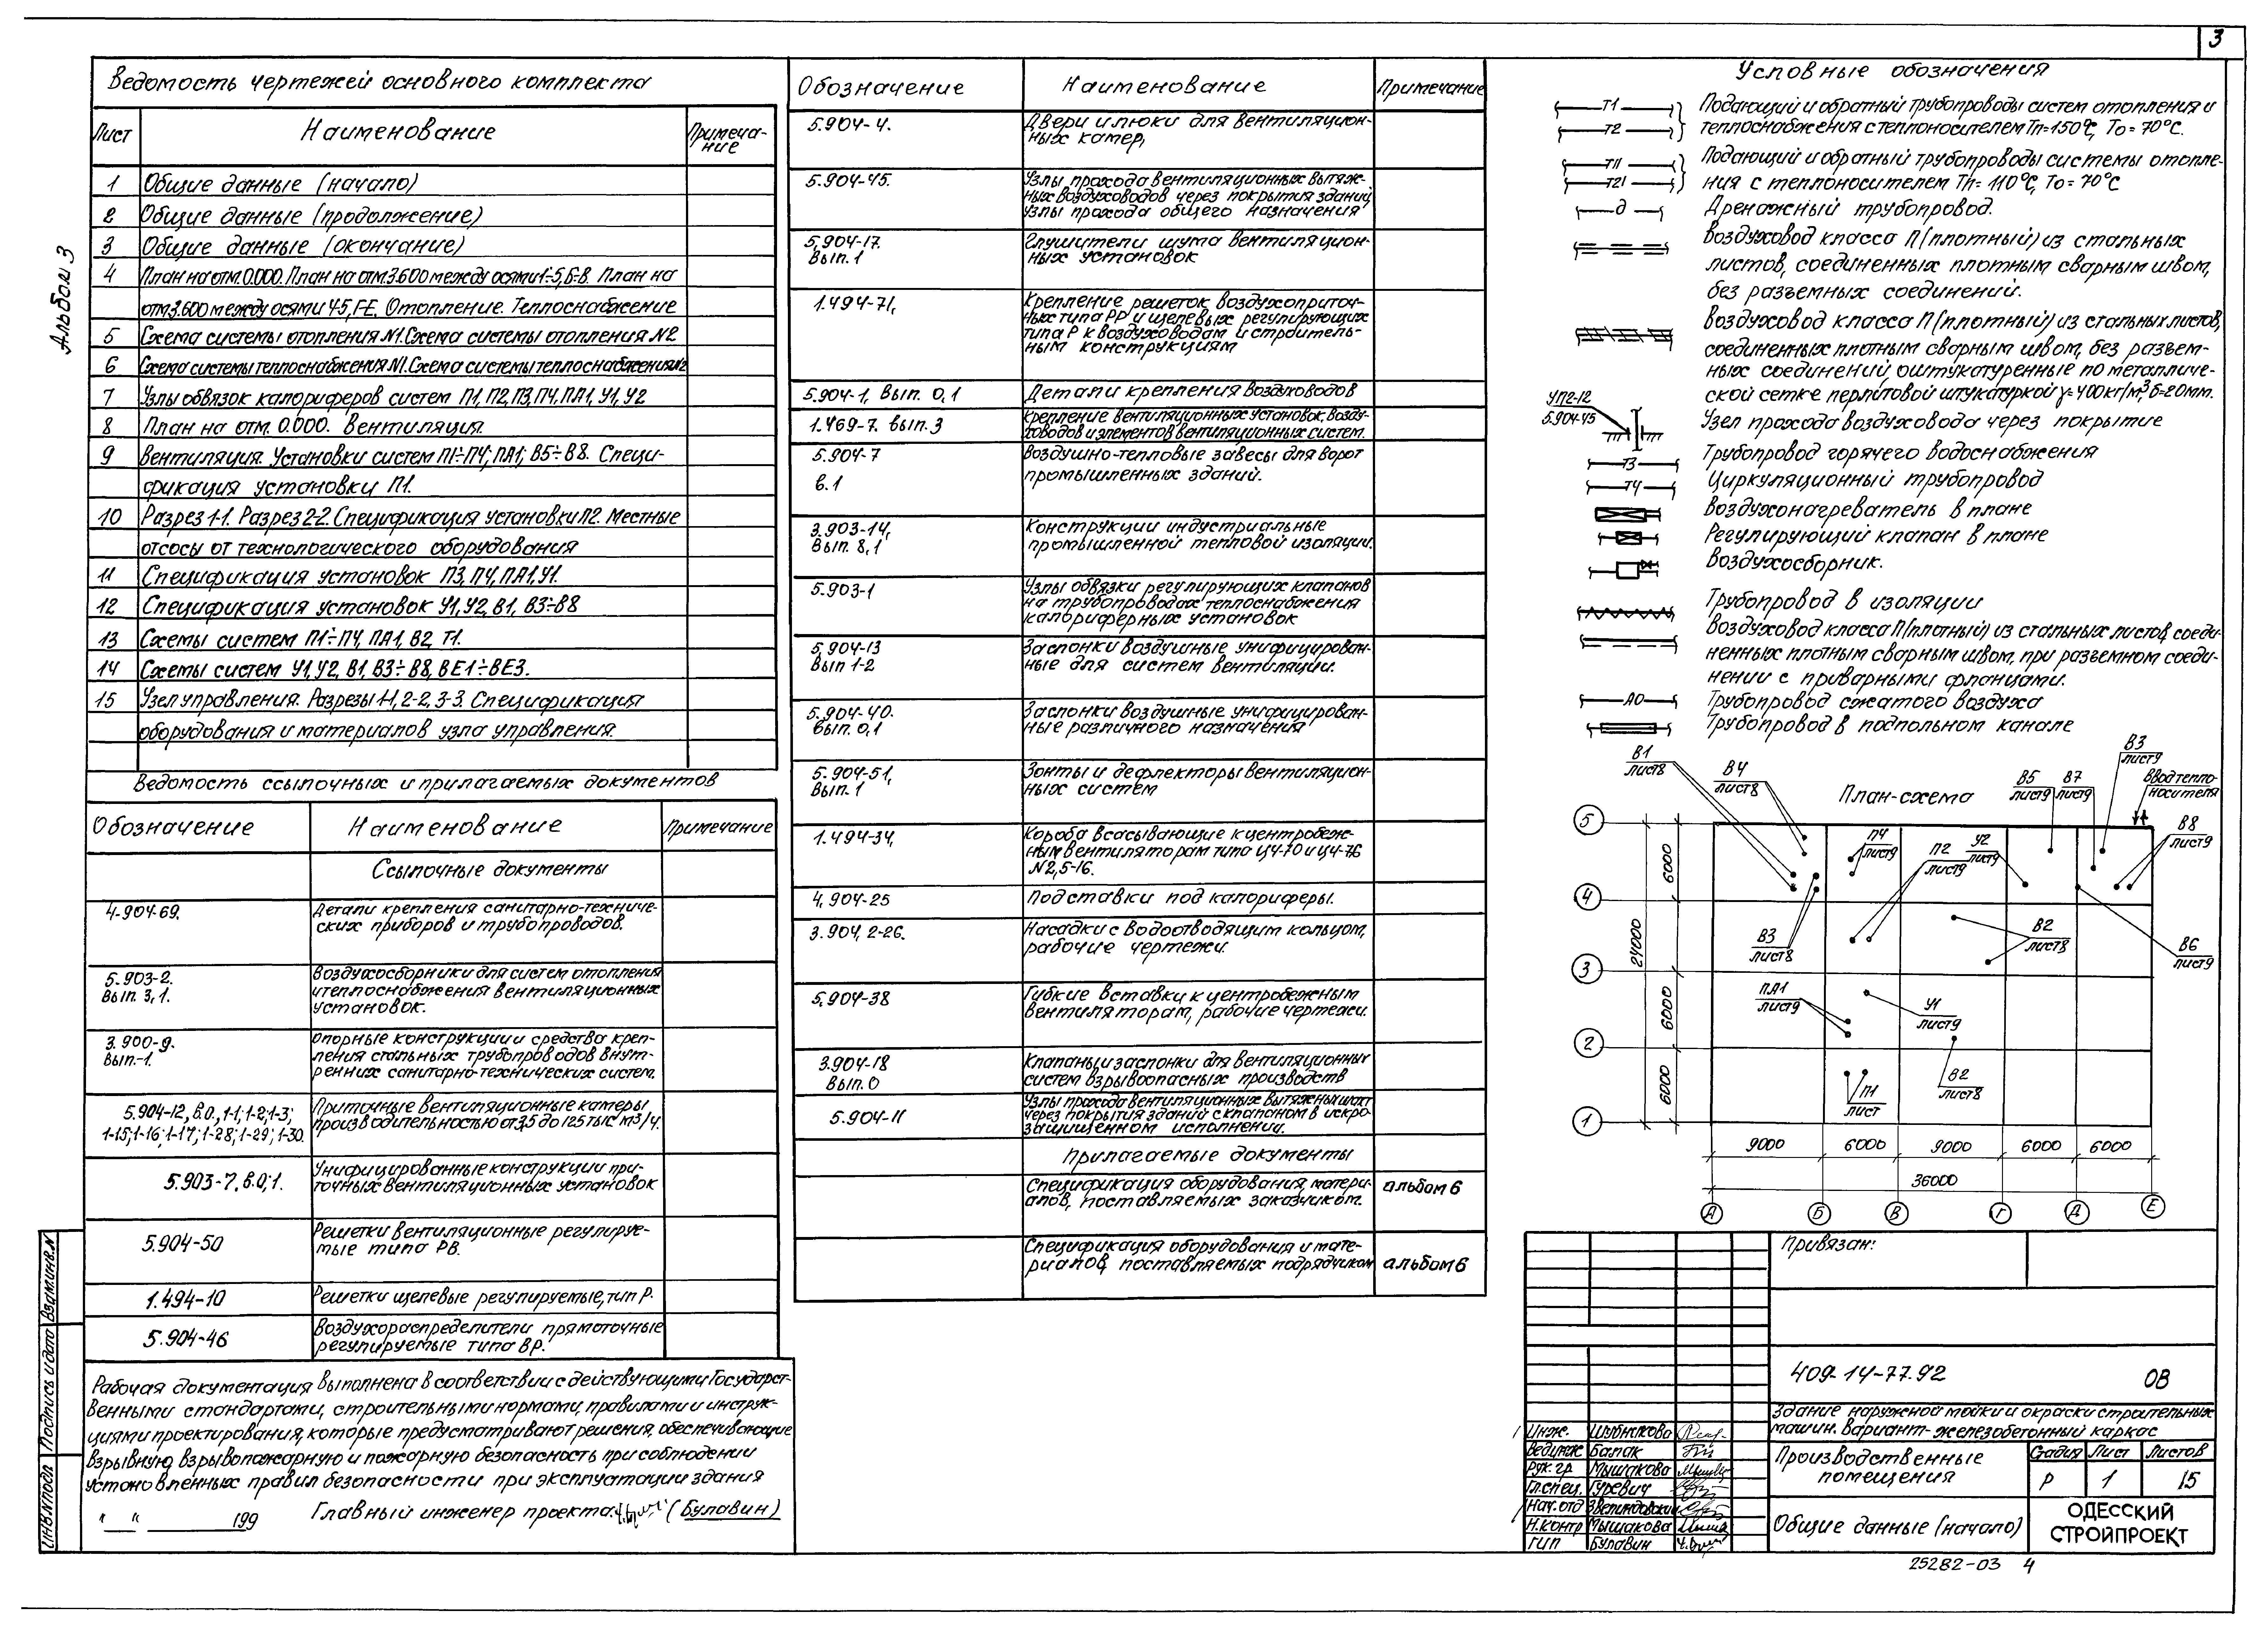 3
Альбом 3
Ведомость чертежей основного комплекта
Лист Наименование Примеча-
ние
1 Общие данные (начало)
2 Общие данные (продолжение)
3 Общие данные (окончание)
4 План на отм. 0.000. План на отм. 3.600 между осями 1÷5, Б÷В. План на
отм. 3.600 между осями 4-5, Г-Е. Отопление. Теплоснабжение
5 Схема системы отопления N1. Схема системы отопления N2
6 Схема системы теплоснабжения N1. Схема системы теплоснабжения N2
7 Узлы обвязок калориферов систем П1, П2, П3, П4, ПА1, У1, У2
8 План на отм. 0.000. Вентиляция.
9 Вентиляция. Установки систем П1÷П4; ПА1; В5÷В8. Специ-
фикация установки П1.
10 Разрез 1-1. Разрез 2-2. Спецификация установки П2. Местные
отсосы от технологического оборудования
11 Спецификация установок П3, П4, ПА1, У1.
12 Спецификация установок У1, У2, В1, В3÷В8
13 Схемы систем П1÷П4, ПА1, В2, Т1.
14 Схемы систем У1, У2, В1, В3÷В8, ВЕ1÷ВЕ3.
15 Узел управления. Разрезы 1-1, 2-2, 3-3. Спецификация
оборудования и материалов узла управления.
Ведомость ссылочных и прилагаемых документов
Обозначение Наименование Примечание
Ссылочные документы
4.904-69. Детали крепления санитарно-техниче-
ских приборов и трубопроводов.
5.903-2. Воздухосборники для систем отопления
Вып. 3, 1. и теплоснабжения вентиляционных
установок.
3.900-9. Опорные конструкции и средства креп-
Вып.-1. ления стальных трубопроводов внут-
ренних санитарно-технических систем.
5.904-12, в.0, 1-1; 1-2; 1-3; Приточные вентиляционные камеры
1-15; 1-16; 1-17; 1-28; 1-29; 1-30. производительностью от 3,5 до 125 тыс м3/ч.
5.903-7. в.0; 1. Унифицированные конструкции при-
точных вентиляционных установок
5.904-50 Решетки вентиляционные регулируе-
мые типа РВ.
1.494-10 Решетки щелевые регулируемые, тип Р.
5.904-46 Воздухораспределители прямоточные
регулируемые типа ВР.
Рабочая документация выполнена в соответствии с действующими Государст-
венными стандартами, строительными нормами, правилами и инструк-
циями проектирования, которые предусматривают решения, обеспечивающие
взрывную, взрывопожарную и пожарную безопасность при соблюдении
установленных правил безопасности при эксплуатации здания
Главный инженер проекта (Булавин)
" " 199
Взам.инв.N
Подпись и дата
Инв.N подл
Обозначение Наименование Примечание
5.904-4. Двери и люки для вентиляцион-
ных камер,
5.904-45. Узлы прохода вентиляционных вытяж-
ных воздуховодов через покрытия зданий,
Узлы прохода общего назначения
5.904-17. Глушители шума вентиляцион-
Вып. 1 ных установок
1.494-71, Крепление решеток воздухоприточ-
ных типа РР и щелевых регулирующих
типа Р к воздуховодам и строитель-
ным конструкциям
5.904-1, вып. 0, 1 Детали крепления воздуховодов
1.469-7. вып. 3 Крепление вентиляционных установок, возду-
ховодов и элементов вентиляционных систем.
5.904-7 Воздушно-тепловые завесы для ворот
в.1 промышленных зданий.
3.903-14, Конструкции индустриальные
Вып. 8, 1 промышленной тепловой изоляции.
5.903-1 Узлы обвязки регулирующих клапанов
на трубопроводах теплоснабжения
калориферных установок
5.904-13 Заслонки воздушные унифицирован-
Вып 1-2 ные для систем вентиляции.
5.904-40. Заслонки воздушные унифицирован-
вып. 0, 1 ные различного назначения
5.904-51, Зонты и дефлекторы вентиляцион-
Вып. 1 ных систем
1.494-34, Короба всасывающие к центробеж-
ным вентиляторам типа Ц4-70 и Ц4-76
N2,5-16.
4.904-25 Подставки под калориферы.
3.904, 2-26. Насадки с водоотводящим кольцом,
рабочие чертежи.
5.904-38 Гибкие вставки к центробежным
вентиляторам, рабочие чертежи.
3.904-18 Клапаны и заслонки для вентиляционных
Вып. 0 систем взрывоопасных производств
5.904-11 Узлы прохода вентиляционных вытяжных шахт
через покрытия зданий с клапаном в искро-
защищенном исполнении.
Прилагаемые документы
Спецификация оборудования, матери- альбом 6
алов, поставляемых заказчиком.
Спецификация оборудования и мате-
риалов, поставляемых подрядчиком альбом 6
Условные обозначения
Т1 Подающий и обратный трубопроводы систем отопления и
Т2 теплоснабжения с теплоносителем Тп=150°С, То=70°С.
Т11 Подающий и обратный трубопроводы системы отопле-
Т21 ния с теплоносителем Тп=110°С, То=70°С
д Дренажный трубопровод.
Воздуховод класса П (плотный) из стальных
листов, соединенных плотным сварным швом,
без разъемных соединений.
Воздуховод класса П (плотный) из стальных листов,
соединенных плотным сварным швом, без разъем-
ных соединений, оштукатуренные по металличе-
ской сетке перлитовой штукатуркой γ=400кг/м³, δ=20мм.
УП2-12
5.904-45 Узел прохода воздуховода через покрытие
Т3 Трубопровод горячего водоснабжения
Т4 Циркуляционный трубопровод
Воздухонагреватель в плане
Регулирующий клапан в плане
Воздухосборник.
Трубопровод в изоляции
Воздуховод класса П (плотный) из стальных листов, соеди-
ненных плотным сварным швом, при разъемном соеди-
нении с приварными фланцами.
А0 Трубопровод сжатого воздуха
Трубопровод в подпольном канале
План-схема
В1
лист8
В4
лист8
В5
лист9
В7
лист9
В3
лист9
Ввод тепло-
носителя
П4
лист9
П2
лист9
У2
лист9
В8
лист9
В3
лист8
В2
лист8
В6
лист9
ПА1
лист9
У1
лист9
П1
лист
В2
лист8
5
4
3
2
1
6000
24000
6000
6000
9000 6000 9000 6000 6000
36000
А Б В Г Д Е
Привязан:
409-14-77.92 ОВ
Здание наружной мойки и окраски строительных
машин. Вариант-железобетонный каркас
Инж. Шубникова
Вед.инж Балак
Рук. гр Мышакова
Гл.спец. Гуревич
Нач. отд
Н.контр Мышакова
ГИП Булавин
Производственные
помещения
Стадия Лист Листов
Р 1 15
Общие данные (начало)
ОДЕССКИЙ
СТРОЙПРОЕКТ
25282-03 4